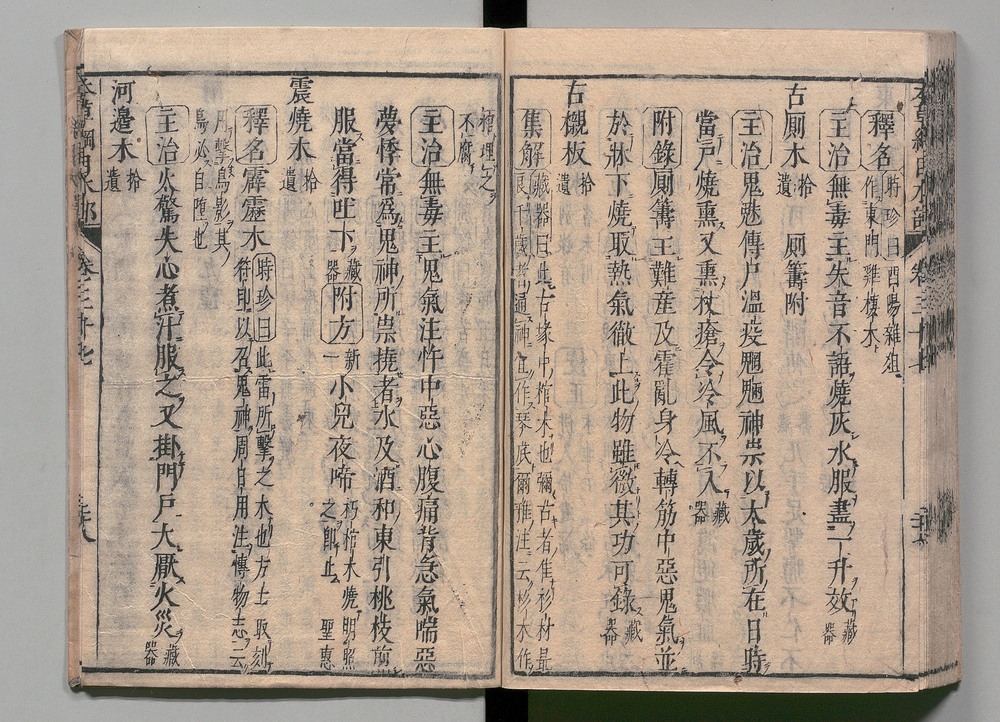 釋名時珍曰酉陽雜俎
作東門雞棲木
主治無毒主失音不語燒灰水服盡一升效藏器
古厠木拾遺 厠籌附
主治鬼魅傳尸溫疫魍魎神祟以太歲所在日時
當戶燒熏又熏杖瘡令冷風不入藏器
附錄厠籌主難產及霍亂身冷轉筋中惡鬼氣並
於牀下燒取熱氣徹上此物雖微其功可錄藏器
古櫬板拾遺
集解藏器曰此古塚中棺木也彌古者佳杉材最
良千歲者通神宜作琴底爾雅注云杉木作
棺埋之
不腐
主治無毒主鬼氣注忤中惡心腹痛背急氣喘惡
夢悸常爲鬼神所祟撓者水及酒和東引桃枝煎
服當得吐下藏器附方新一小兒夜啼朽棺木燒明照
之即止聖惠
震燒木拾遺
釋名霹靂木時珍曰此雷所擊之木也方士取刻
符印以召鬼神周日用注博物志云
用擊鳥影其
鳥必自墮也
主治火驚失心煮汁服之又掛門戶大厭火災藏器
河邊木拾遺